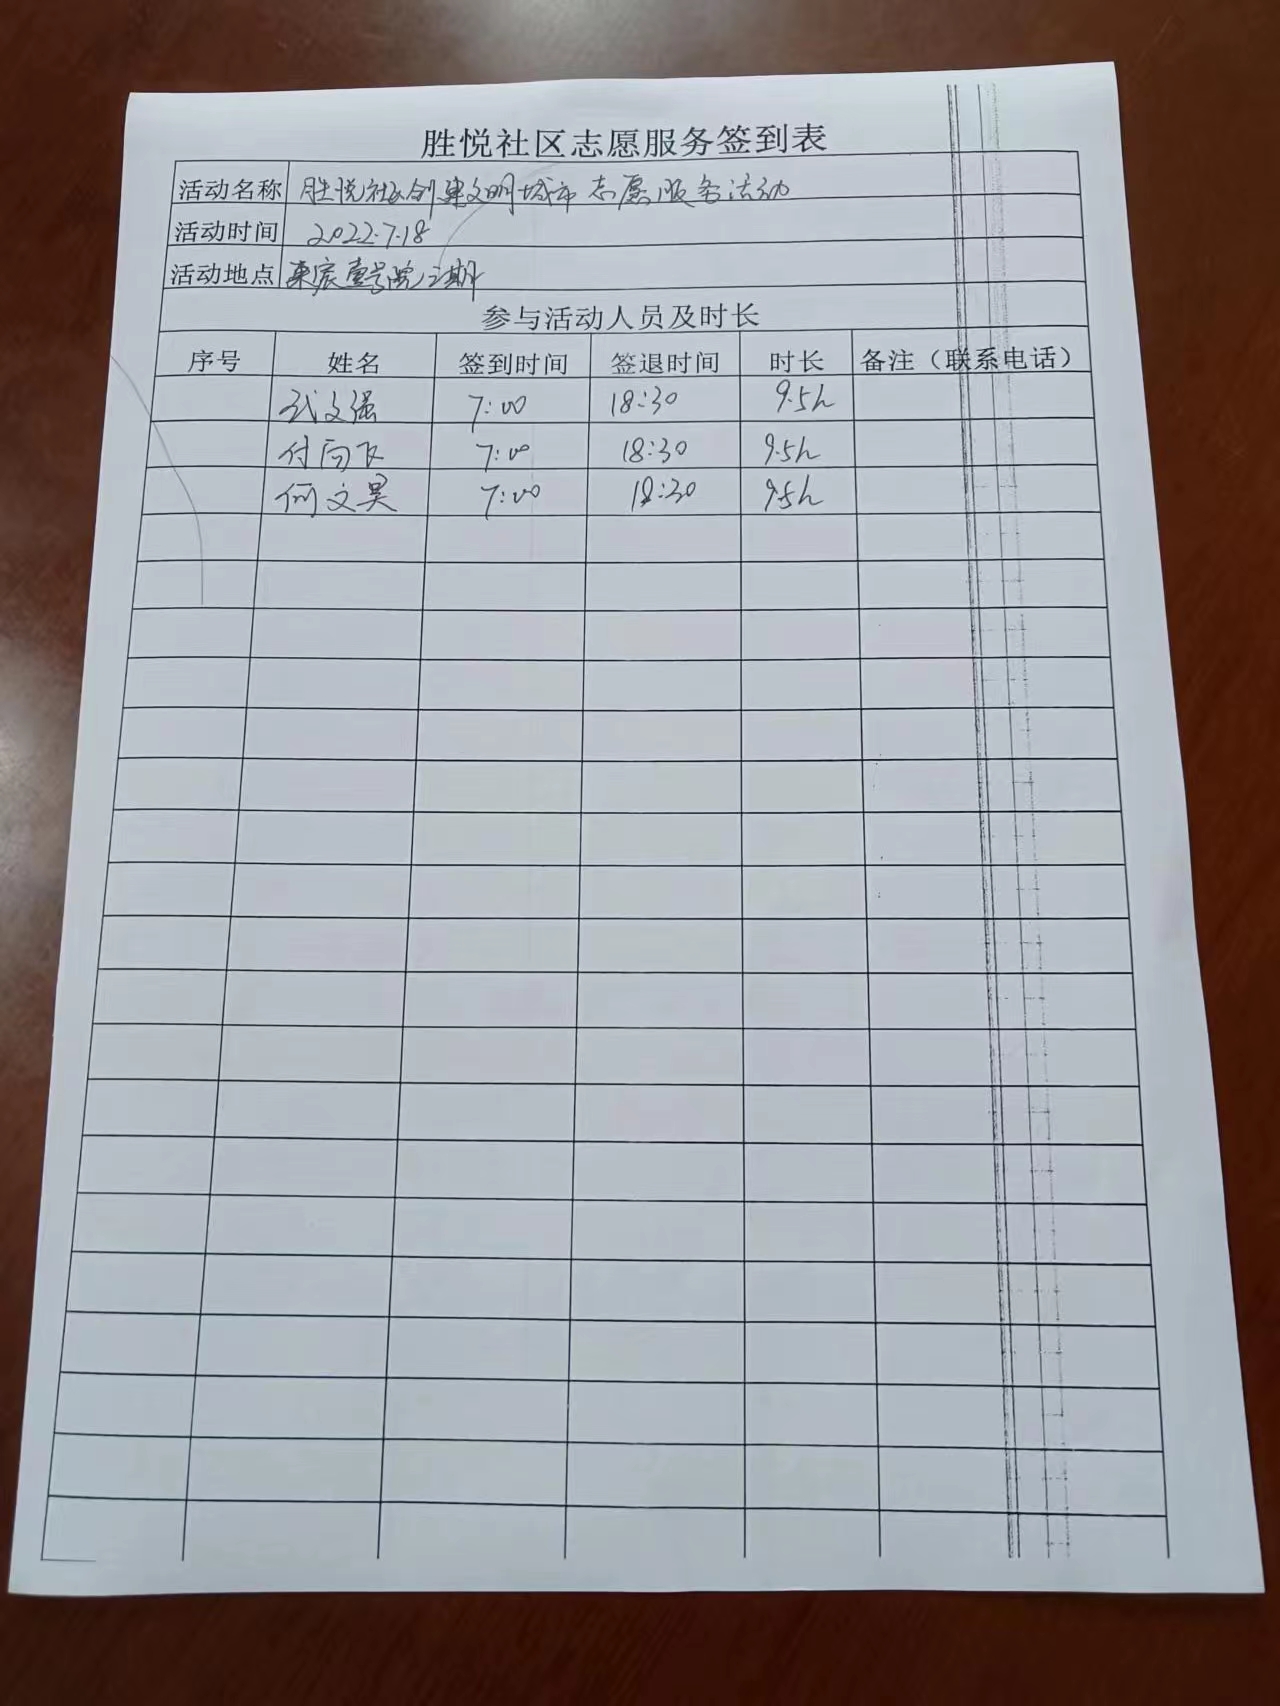 胜悦社区志愿服务签到表
活动名称 胜悦社区创建文明城市志愿服务活动
活动时间 2022.7.18
活动地点 东宸壹号院二期
参与活动人员及时长
序号 姓名 签到时间 签退时间 时长 备注（联系电话）
武文强 7:00 18:30 9.5h
付向飞 7:00 18:30 9.5h
何文昊 7:00 18:30 9.5h